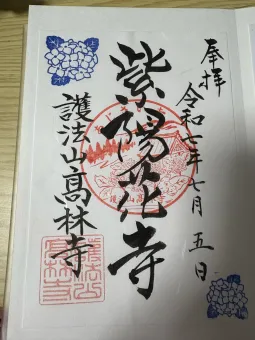 奉拝
令和七年七月五日
紫陽花寺
護法山髙林寺